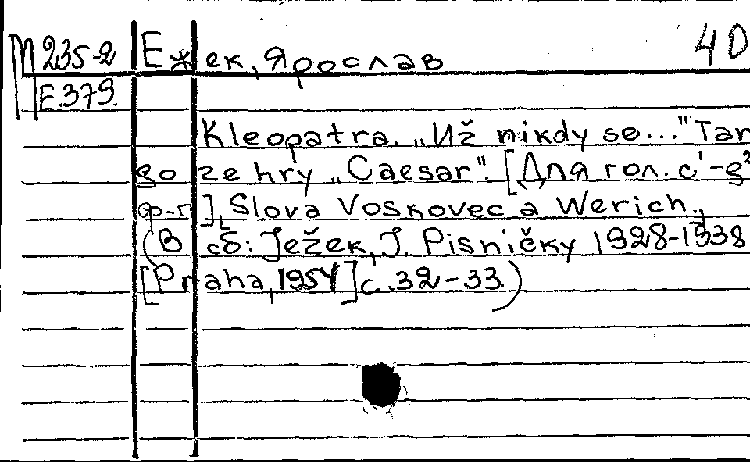 М 235-2 Ежек, Ярослав 4D
Е 379
Kleopatra. „Už nikdy se..." Tan
go ze hry „Caesar". [Для гол. с'-g²
ф-п], Slova Voskovec a Werich,
(В сб: Ježek, J. Pisničky 1928-1938
[Praha, 1954] с. 32-33)